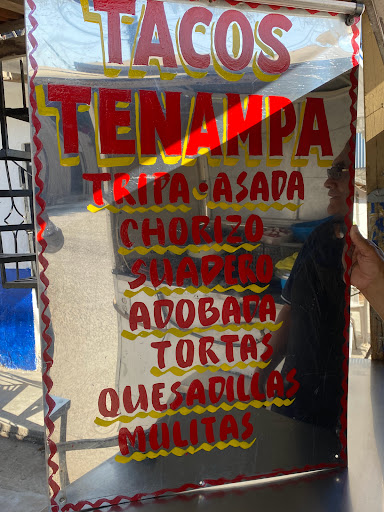 TACOS
TENAMPA
TRIPA • ASADA
CHORIZO
SUADERO
ADOBADA
TORTAS
QUESADILLAS
MULITAS